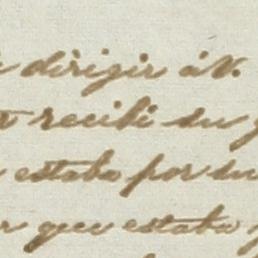 dirigir á V.
recibi su
estaba por su
que estaba